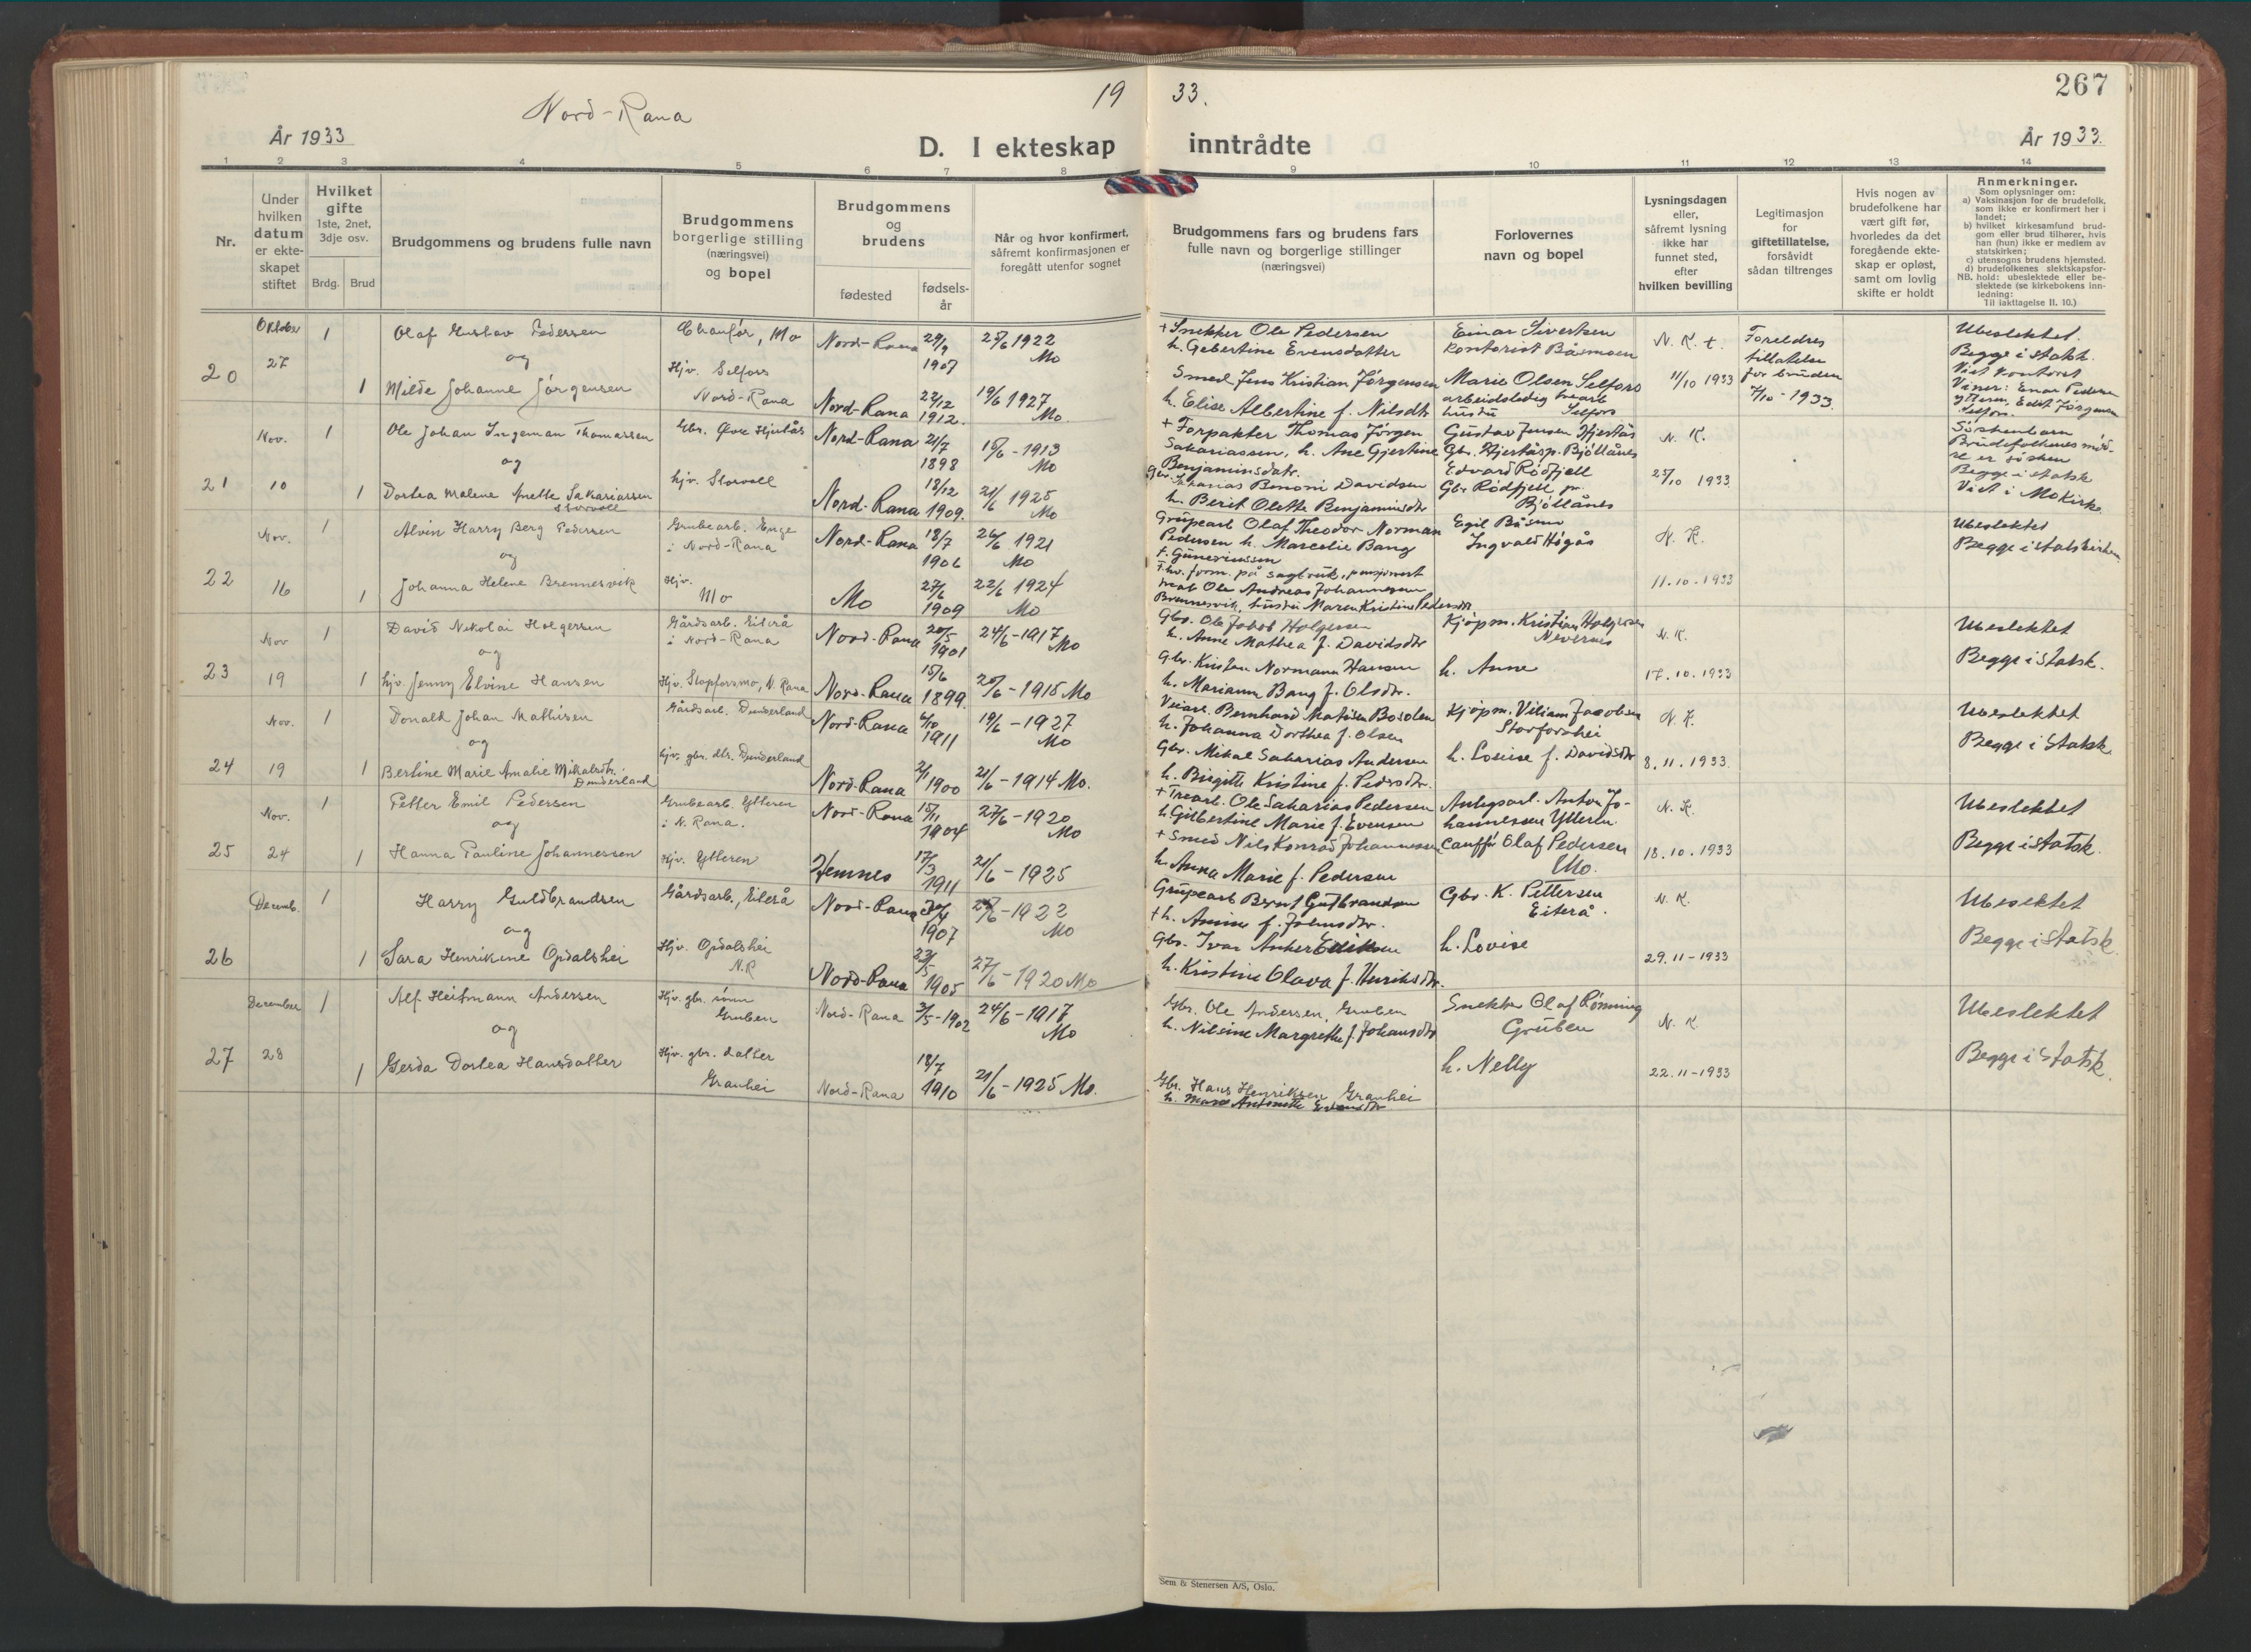 267
Nord-Rana
19 33.
År 1933
D. I ekteskap inntrådte
År 1933.
1 2 3 4 5 6 7 8 9 10 11 12 13 14
Nr.
Under hvilken datum er ekteskapet stiftet
Hvilket gifte 1ste, 2net, 3dje osv.
Brdg. Brud
Brudgommens og brudens fulle navn
Brudgommens borgerlige stilling (næringsvei) og bopel
Brudgommens og brudens
fødested
fødselsår
Når og hvor konfirmert, såfremt konfirmasjonen er foregått utenfor sognet
Brudgommens fars og brudens fars fulle navn og borgerlige stillinger (næringsvei)
Forlovernes navn og bopel
Lysningsdagen eller, såfremt lysning ikke har funnet sted, efter hvilken bevilling
Legitimasjon for giftetillatelse, forsåvidt sådan tiltrenges
Hvis nogen av brudefolkene har vært gift før, hvorledes da det foregående ekteskap er opløst, samt om lovlig skifte er holdt
Anmerkninger.
Som oplysninger om:
a) Vaksinasjon for de brudefolk, som ikke er konfirmert her i landet;
b) hvilket kirkesamfund brudgom eller brud tilhører, hvis han (hun) ikke er medlem av statskirken;
c) utensogns brudens hjemsted.
d) brudefolkenes slektskapsforhold: ubeslektede eller beslektede (se kirkebokens innledning:
NB. Til iakttagelse II. 10.)
20
Oktober 27
1
Olaf Gustav Pedersen
og
1 Milde Johanne Jørgensen
Chaufør, Mo
Hjv. Selfors
Nord-Rana
Nord-Rana 29/9 1907
25/6 1922 Mo
Nord-Rana 22/12 1912.
19/6 1927 Mo.
+ Snekker Ole Pedersen
h. Gebertine Evensdatter
Smed Jens Kristian Jørgensen
h. Elise Albertine f. Nilsdtr
Einar Sivertsen
Kontorist Båsmoen
Marie Olsen Selfors
arbeidsledig
hustru Selfors
N. K. t.
11/10 1933
Foreldres
tillatelse
for bruden
7/10 - 1933.
Ubeslektet.
Begge i statsk.
Viet kontoret
21
Nov. 10
1
Ole Johan Ingeman Thomassen
og
1 Dortea Malene Anette Sakariassen
Storvoll
Gbr. Øvre Hjertås
hjv. Storvoll
Nord-Rana 21/7 1898
15/6 - 1913 Mo
Nord-Rana 18/12 1909.
21/6 1925 Mo
+ Forpakter Thomas Jørgen
Sakariassen, h. Ane Gjertine
Benjaminsdatr.
Gbr. Sakarias Benoni Davidsen
h. Berit Olette Benjaminsdtr
Gustav Jensen Hjertås
Gbr. Hjertås p. Bjøllånes
Edvard Rødfjell
Gbr Rødfjell pr.
Bjøllånes
N. K.
25/10 1933
Søskenbarn
Brudefolkenes mødre er søsken
Begge i statsk
Viet i Mo Kirke
22
Nov. 16
1
Alvin Harry Berg Pedersen
og
1 Johanna Helene Brennesvik
Grubearb. Enge
i Nord-Rana
Hjv. Mo
Nord-Rana 18/7 1906
26/6 1921 Mo
Mo 27/6 1909
22/6 1924 Mo
Grubearb Olaf Theodor Norman
Pedersen h. Marcelie Bang
f. Gunerinssen
Fhv. form. på sagbruk, pensjonert
Ole Andreas Johannesen
Brennesvik, hustru Maren Kristine Pedersdtr
Egil Båsmo
Ingvald Høgås
N. K.
11.10.1933
Ubeslektet
Begge i statskirken
23
Nov 19
1
David Nikolai Holgersen
og
1 hjv. Jenny Elvine Hansen
Gårdsarb. Eiterå
i Nord-Rana
Hjv. Storforsmo, N. Rana
Nord-Rana 20/5 1901
24/6 - 1917 Mo
Nord-Rana 15/6 1899.
20/6 - 1915 Mo
Gbr. Ole Jakob Holgersen
h. Anne Mathea f. Davidsdtr
Gbr. Kristen Normann Hansen
h. Mariann Bang f. Olsdtr.
Kjøpm. Kristian Holgersen
Nevernes
h. Anne
N. K.
17.10.1933
Ubeslektet
Begge i Statsk.
24
Nov. 19
1
Donald Johan Mathisen
og
1 Bertine Marie Amalie Mikalsdtr.
Dunderland
Gårdsarb. Dunderland
hjv. gbr. dtr. Dunderland
Nord-Rana 6/10 1911
19/6 - 1927 Mo
Nord-Rana 2/11 1900
21/6 - 1914 Mo.
Veiarb. Bernhard Matisen Bosdlen
h. Johanna Dorthea f. Olsen
Gbr. Mikal Sakarias Andersen
h. Birgitte Kristine f. Pedersdtr.
Kjøpm. Viliam Jacobsen
Storforshei
h. Louise f. Davidsdtr
N. K.
8.11.1933
Ubeslektet
Begge i Statsk
25
Nov. 24
1
Petter Emil Pedersen
og
1 Hanna Pauline Johannessen
Grubearb. Ytteren
i N. Rana.
Hjv. Ytteren
Nord-Rana 15/11 1904
27/6 - 1920 Mo
Hemnes 17/3 1911
21/6 - 1925
+ Trearb. Ole Sakarias Pedersen
h Gilbertine Marie f. Evensen
+ Smed Nils Konrad Johannessen
h. Anna Marie f. Pedersen
Anlegsarb. Anton Johannessen Ytteren.
Cauffør Olaf Pedersen
Mo.
N. K.
18.10.1933
Ubeslektet
Begge i Statsk.
26
Decemb.
1
Harry Guldbrandsen
og
1 Sara Henrikine Opdalshei
Gårdsarb., Eiterå
Hjv. Opdalshei
N.R
Nord-Rana 1907
25/6 - 1922 Mo
Nord-Rana 23/5 1905
27/6 - 1920 Mo
Grubearb Bernt Gudbrandsen
+ h. Anine f. Johnsdtr.
Gbr. Ivar Anker Eriksen
h. Kristine Olava f. Henriksdtr.
Gbr. K. Pettersen
Eiterå.
h. Lovise
N. K.
29.11-1933
Ubeslektet
Begge i Statsk.
27
December 28
1
Alf Heitmann Andersen
og
1 Gerda Dortea Hansdatter
Hjv. gbr. sønn
Gruben
Hjv. gbr. datter
Granhei
Nord-Rana 3/5 - 1902
24/6 - 1917 Mo
Nord-Rana 18/7 1910
21/6 - 1925 Mo.
Gbr. Ole Andersen, Gruben
h. Nilsine Margrethe f. Johansdtr
Gbr. Hans Henriksen Granhei
h. Maren Antonette
Snekker Olaf Rønning
Gruben
h. Nelly
N. K.
22.11-1933
Ubeslektet
Begge i Statsk.
Sem & Stenersen A/S, Oslo.